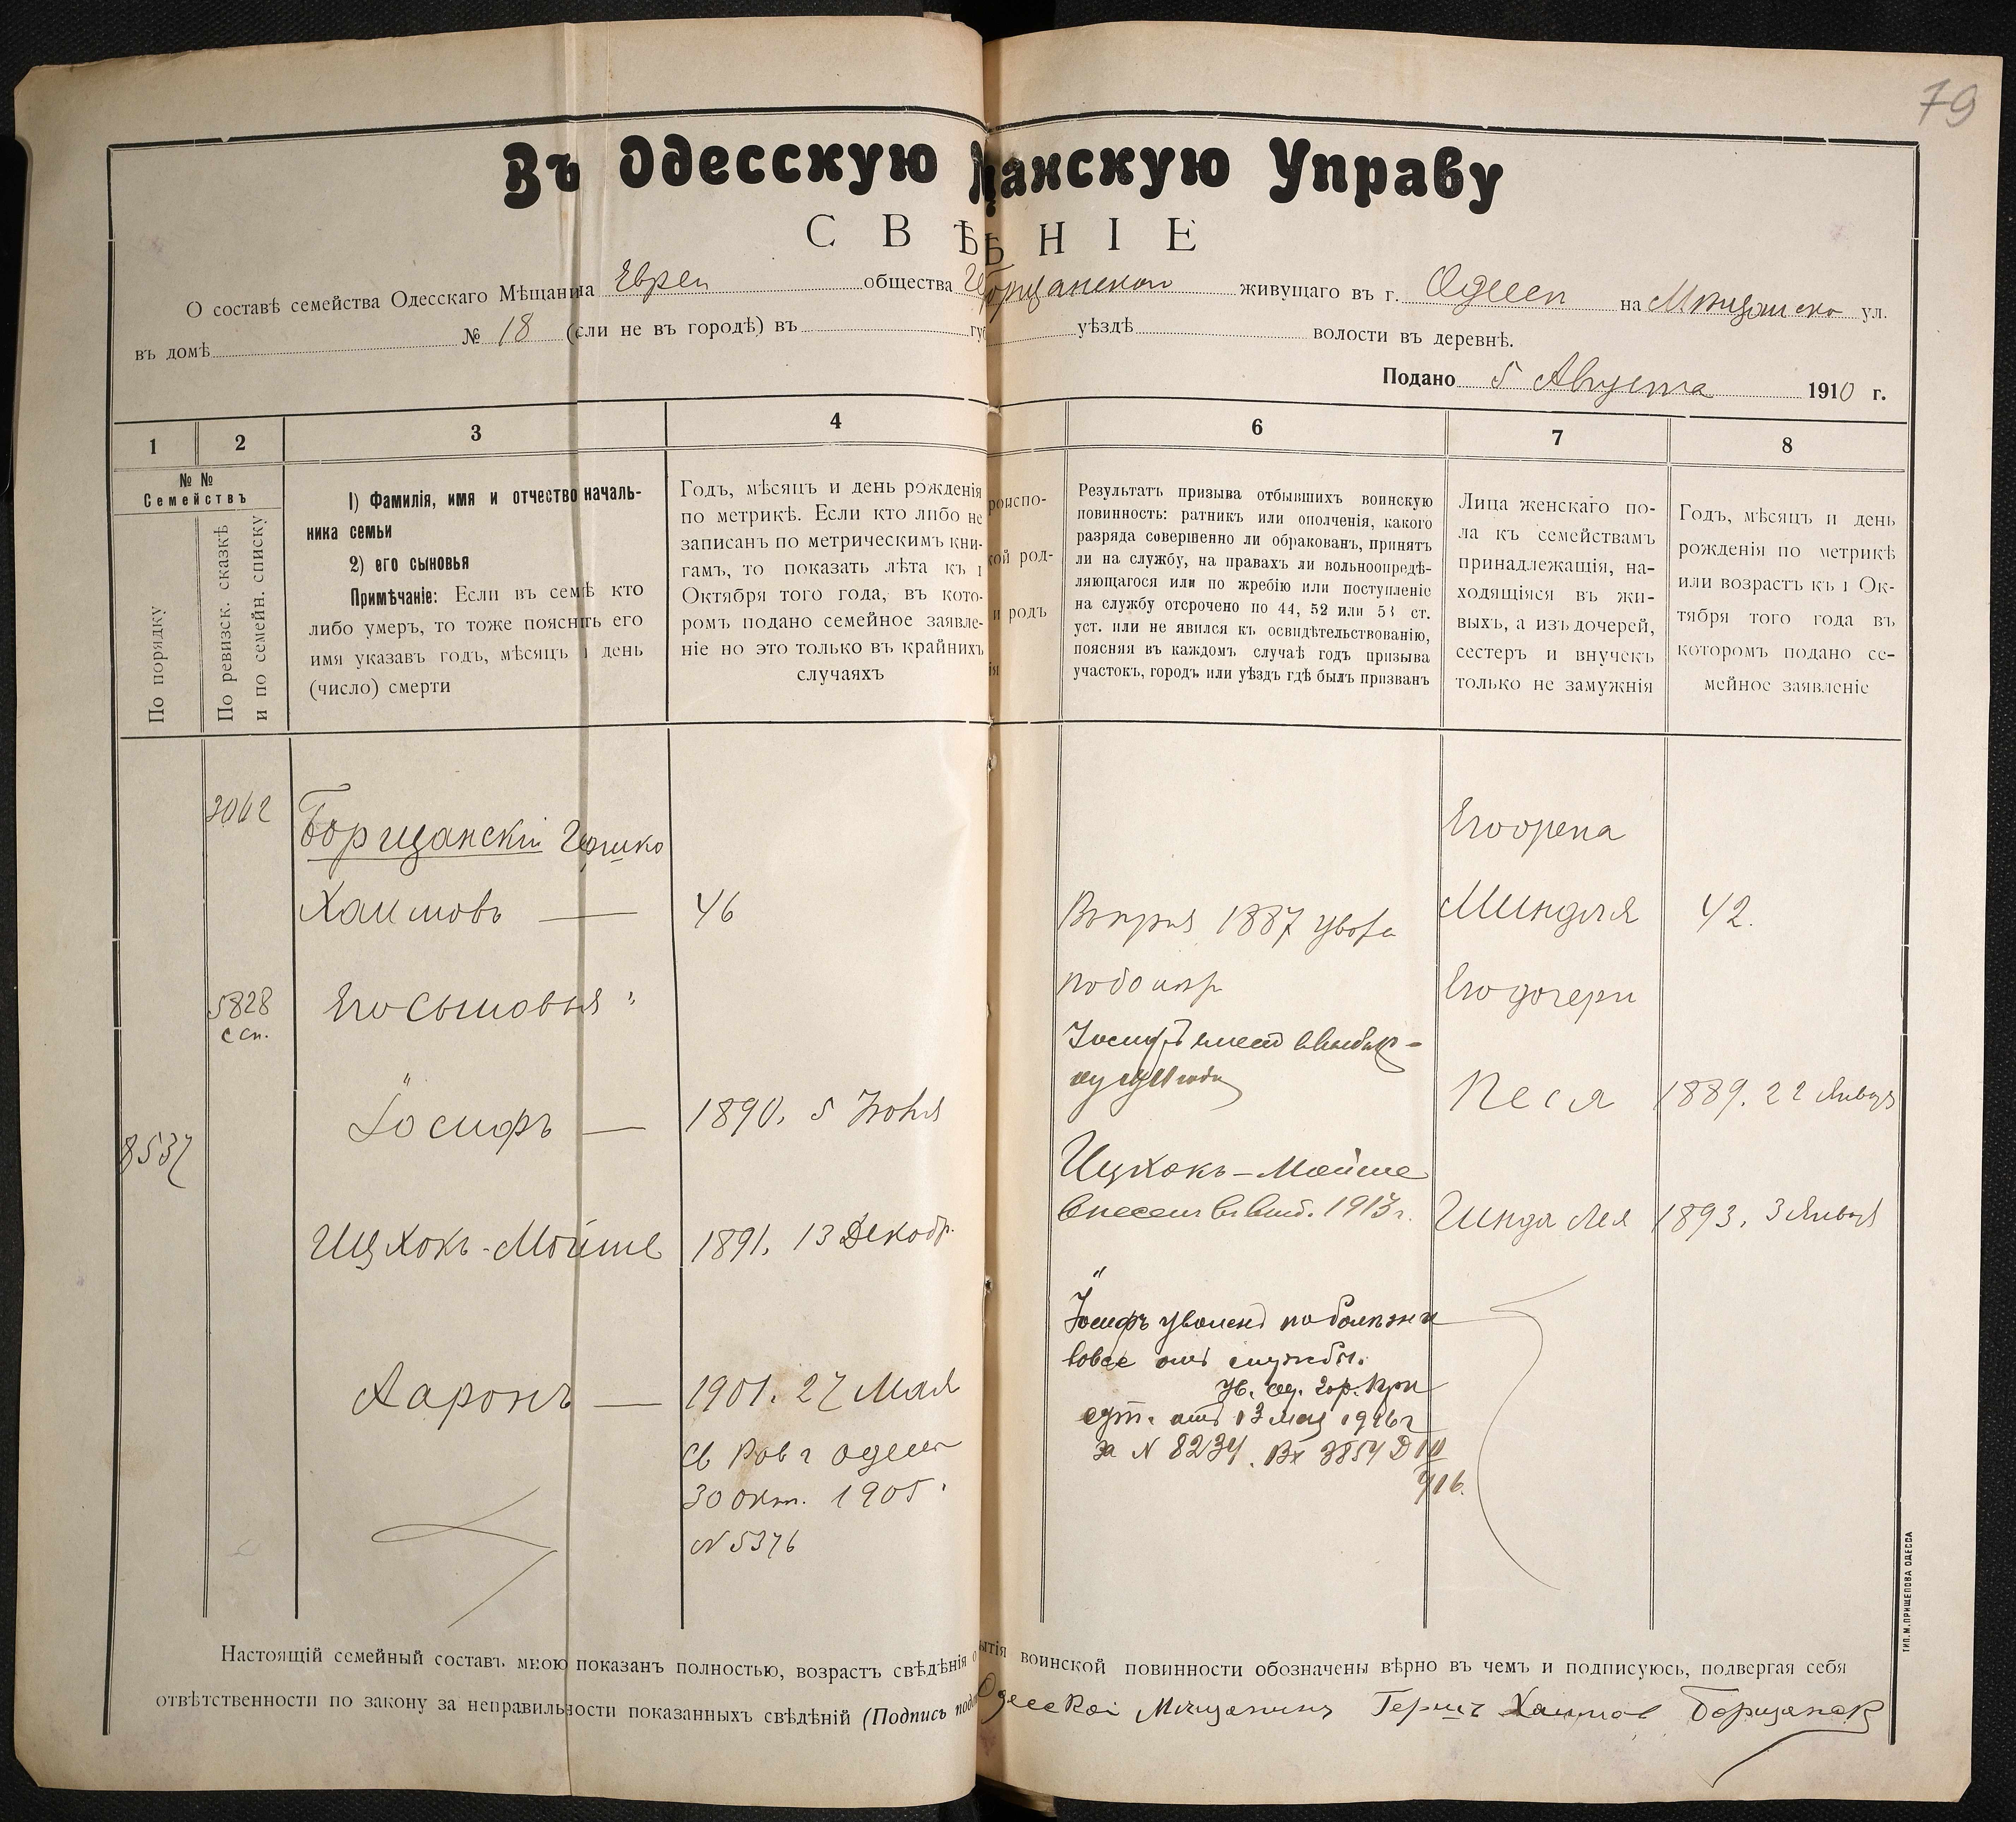 79
Въ Одесскую щанскую Управу
СВѢ ѢНІЕ
О составѣ семейства Одесскаго Мѣщанина Еврея общества живущаго въ г. Одессѣ на ул.
въ домѣ № 18 (если не въ городѣ) въ уѣздѣ волости въ деревнѣ.
Подано 5 Августа 1910 г.
1
2
3
4
6
7
8
№ №
Семействъ
По порядку
По ревизск. сказкѣ
и по семейн. списку
1) Фамилія, имя и отчество началь-
ника семьи
2) его сыновья
Примѣчаніе: Если въ семьѣ кто
либо умеръ, то тоже пояснить его
имя указавъ годъ, мѣсяцъ и день
(число) смерти
Годъ, мѣсяцъ и день рожденія
по метрикѣ. Если кто либо не
записанъ по метрическимъ кни-
гамъ, то показать лѣта къ 1
Октября того года, въ кото-
ромъ подано семейное заявле-
ніе но это только въ крайнихъ
случаяхъ
роиспо-
кой род-
и родъ
ія
Результатъ призыва отбывшихъ воинскую
повинность: ратникъ или ополченія, какого
разряда совершенно ли обракованъ, принятъ
ли на службу, на правахъ ли вольноопредѣ-
ляющагося или по жребію или поступленіе
на службу отсрочено по 44, 52 или 53 ст.
уст. или не явился къ освидѣтельствованію,
поясняя въ каждомъ случаѣ годъ призыва
участокъ, городъ или уѣздъ гдѣ былъ призванъ
Лица женскаго по-
ла къ семействамъ
принадлежащія, на-
ходящіяся въ жи-
выхъ, а изъ дочерей,
сестеръ и внучекъ
только не замужнія
Годъ, мѣсяцъ и день
рожденія по метрикѣ
или возрастъ къ 1 Ок-
тября того года въ
которомъ подано се-
мейное заявленіе
3062
Борщанскій Гершко
Хаимовъ — 46
1887
Его жена
Миндля 42.
5828
с сп.
Его сыновья
Его дочери
8537
Іосифъ — 1890. 5 Іюня
Песя 1889. 22 Январ
Ицхокъ-Мойше 1891. 13 Декабр.
Ицхокъ-Мойше
внесенъ въ 1913 г.
Гинда Лея 1893. 3 Января
Іосифъ уволенъ по болѣзни
вовсе отъ службы.
Ув. Од. Гор. При
сут. отъ 13 Мая 1916 г
за N 8234. Вх 3854
Ааронъ — 1901. 27 Мая
Св Рав г Одессы
30 Окт. 1905.
N 5376
Настоящій семейный составъ мною показанъ полностью, возрастъ свѣдѣнія о ытія воинской повинности обозначены вѣрно въ чемъ и подписуюсь, подвергая себя
отвѣтственности по закону за неправильности показанныхъ свѣдѣній (Подпись Одесскій Мѣщанинъ Гершъ Хаимов Борщанск
ТИП. М. ПРИЩЕПОВА ОДЕССА